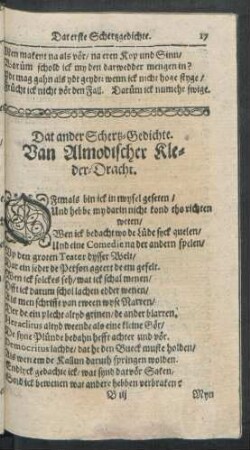 Dat erste Schertzgedichte. 17
Men makent na als vör/ na eren Kop und Sinn/
Worüm schold ick my den darwedder mengen in?
Ydt mag gahn als ydt geydt: wenn ick nicht hoge styge/
Frücht ick nicht vör den Fall. Darüm ick numehr swige.
Dat ander Schertz-Gedichte.
Van Almodischer Kle-
der-Dracht.
OFtmals bin ick in twysel geseten/
Und hebbe my darin nicht kond tho richten
weten/
Wen ick bedacht wo de Lüde speck quelen/
Und eine Comedie na der andern spelen/
Up den groten Teater dysser Welt/
Dar ein jeder de Person ageert de em gefelt.
Wen ick solckes seh/ wat ick schal menen/
Offt ick darum schol lachen edder wenen/
Als men schrifft van tween wyse Narren/
Der de ein plecht altyd grinen/ de ander blarren/
Heraclitus altyd weende als eine kleine Gör/
De syne Plünde bedahn hefft achter und vör.
Democritus lachde/ dat he den Bueck muste holden/
Als wen em de Kaldun daruth springen wolden.
Endlyck gedachte ick/ wat synd dat vör Saken/
Send ick beweinen wat andere hebben verbraken?
B iij Myn